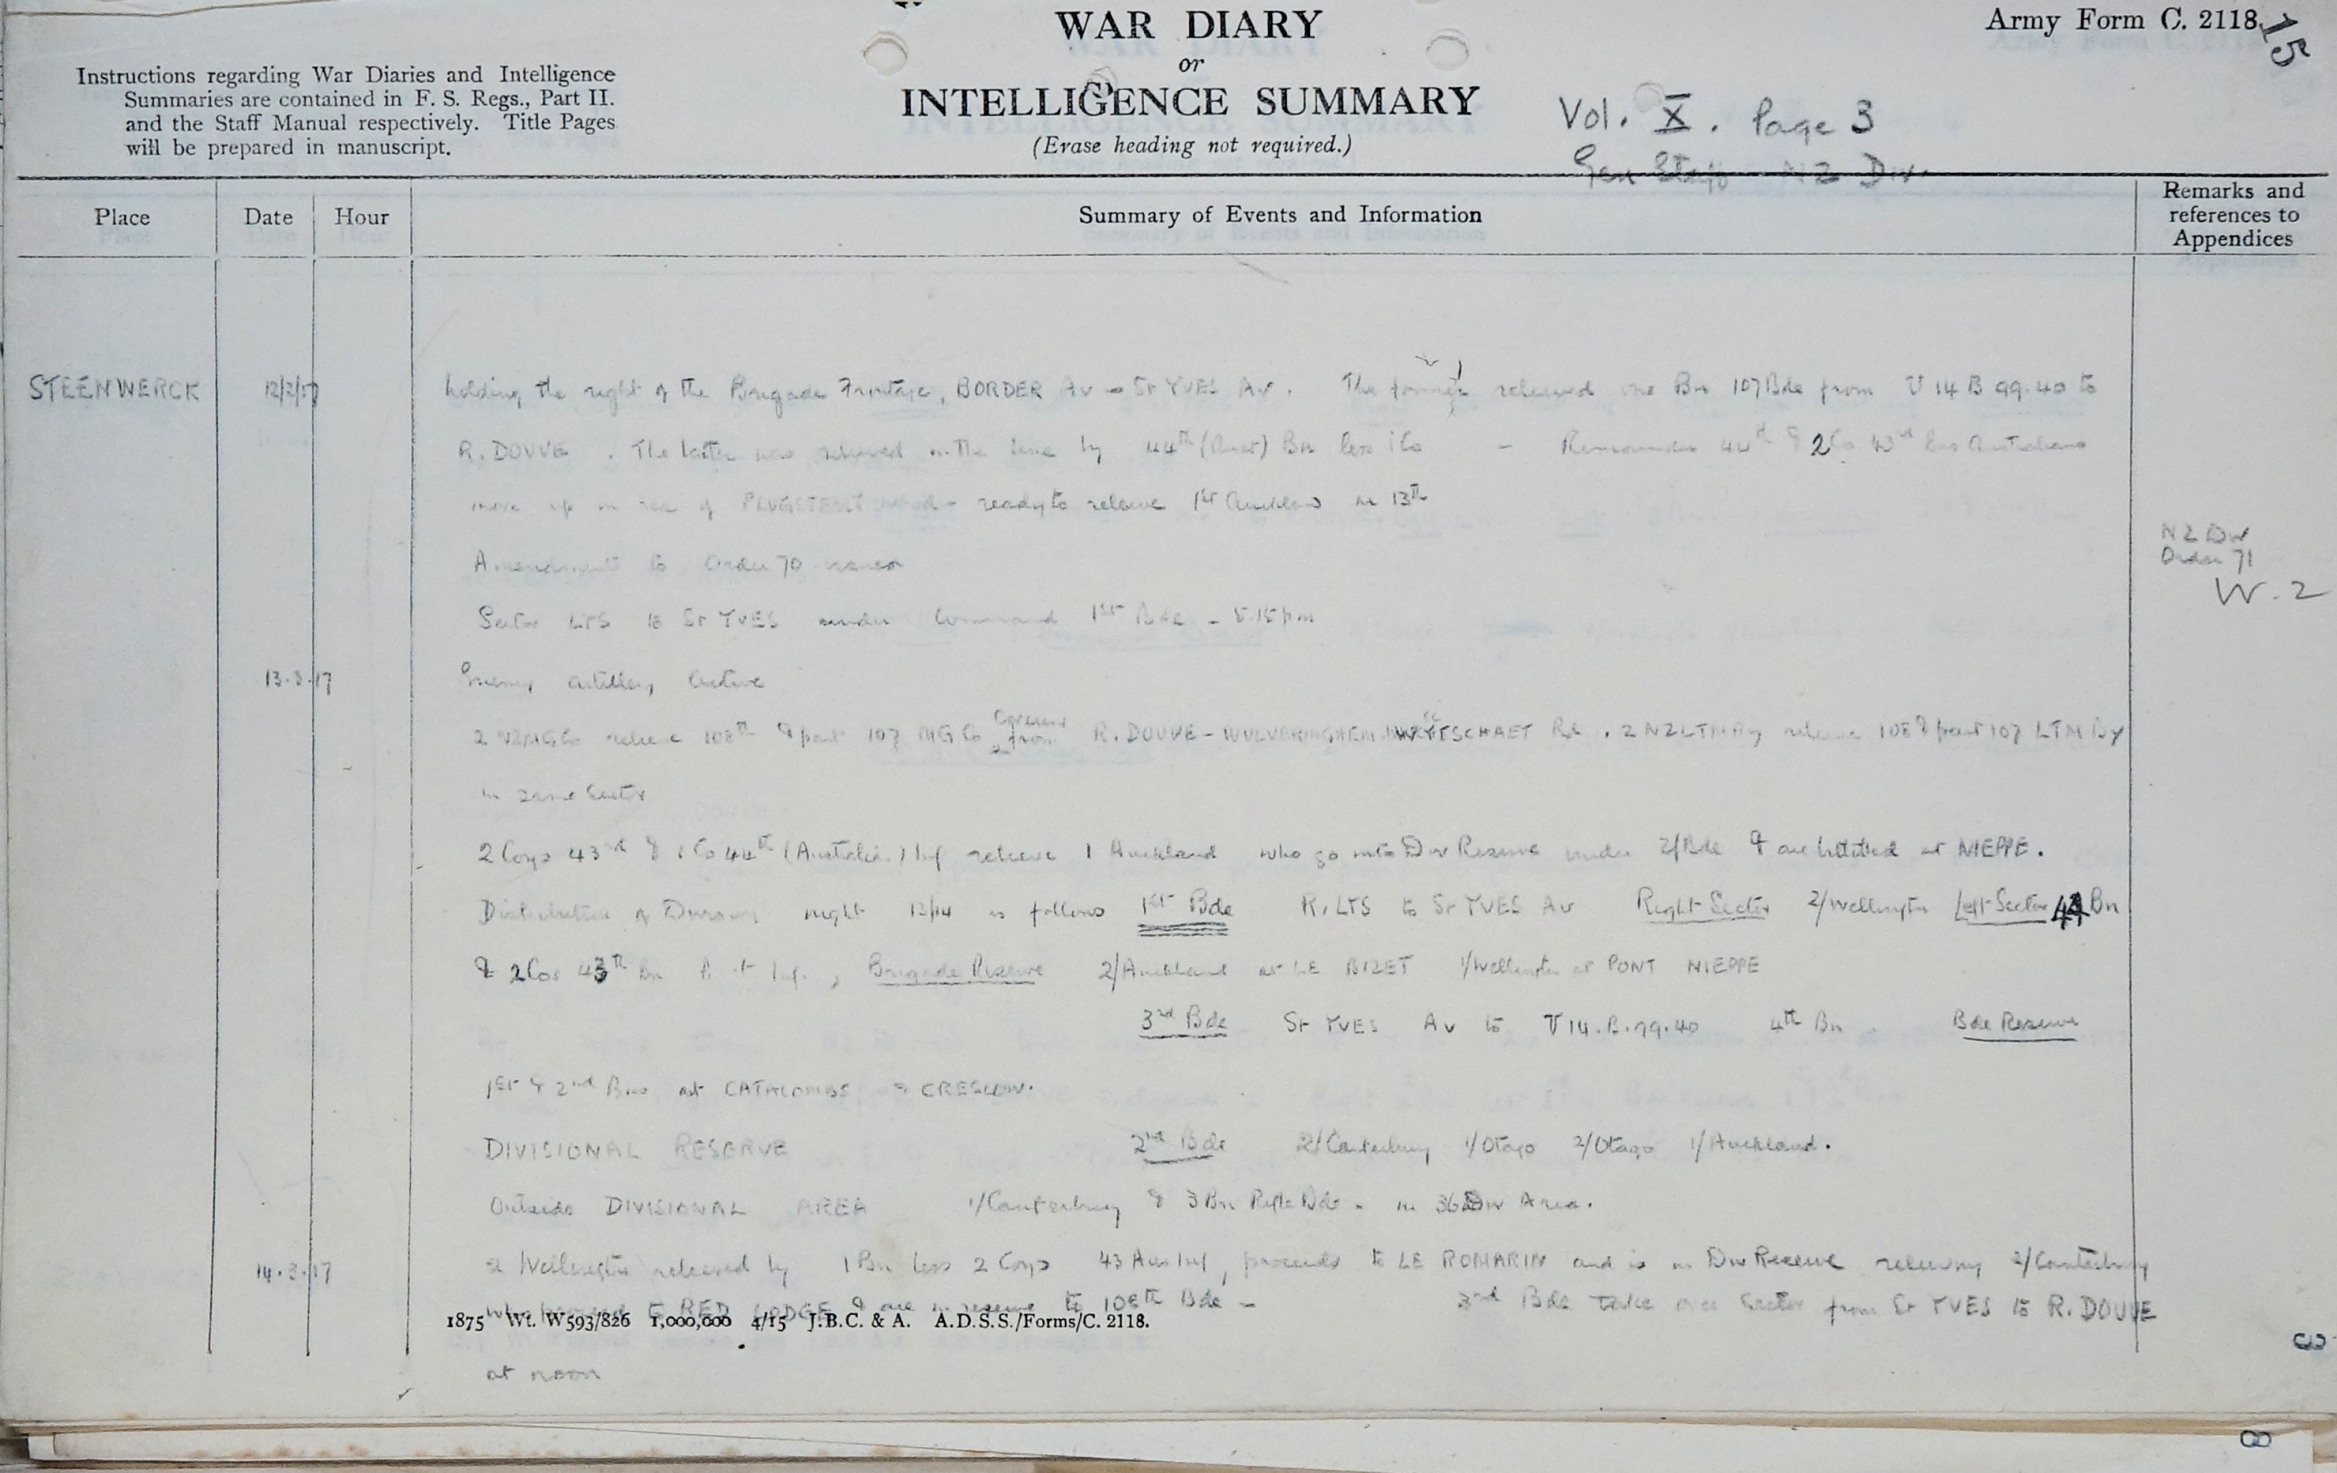 WAR DIARY
or
INTELLIGENCE SUMMARY
(Erase heading not required.)
Army Form C. 2118.
15
Instructions regarding War Diaries and Intelligence
Summaries are contained in F. S. Regs., Part II.
and the Staff Manual respectively. Title Pages
will be prepared in manuscript.
Vol. X. Page 3
Gen Staff NZ Div.
Place
Date
Hour
Summary of Events and Information
Remarks and
references to
Appendices
STEENWERCK
12/3/17
holding the right of the Brigade Frontage, BORDER Av - St YVES Av. The former relieved one Bn 107 Bde from U 14 B 99.40 to
R. DOUVE. The latter was relieved in the line by 44th (Aust) Bn less 1 Co - Remainder 44th & 2 Co 43rd Bns Australians
move up in rear of PLUGSTEERT Wood - ready to relieve 1st Auckland on 13th
Amendment to Order 70 issued
NZ Div
Order 71
W.2
Sector LYS to St YVES under Command 1st Bde - 5.15 pm
13.3.17
Enemy artillery active
2 NZMGCo relieve 108th & part 107 MG Co covering from R. DOUVE - WULVERINGHEM - WYTSCHAET Rd. 2 NZLTMBy relieve 108 & part 107 LTM By
in same Sector
2 Coys 43rd & 1 Co 44th (Australian) Inf relieve 1 Auckland who go into Div Reserve under 2/Bde & are billeted at NIEPPE.
Distribution of Division night 13/14 as follows 1st Bde R. LYS to St YVES Av Right Sector 2/Wellington Left Sector 44 Bn
& 2 Cos 43th Bn A Inf., Brigade Reserve 2/Auckland at LE BIZET 1/Wellington at PONT NIEPPE
3rd Bde St YVES Av to U 14.B.99.40 4th Bn. Bde Reserve
1st & 2nd Bns at CATACOMBS & CRESLOW.
DIVISIONAL RESERVE 2nd Bde 2/Canterbury 1/Otago 2/Otago 1/Auckland.
Outside DIVISIONAL AREA 1/Canterbury & 3 Bn Rifle Bde. in 36 Div Area.
14.3.17
2 Wellington relieved by 1 Bn less 2 Coys 43 Aus Inf, proceeds to LE ROMARIN and is in Div Reserve relieving 2/Canterbury
who proceed to RED LODGE & are in reserve to 108th Bde - 3rd Bde take over Sector from St YVES to R. DOUVE
1875 Wt. W593/826 1,000,000 4/15 J.B.C. & A. A.D.S.S./Forms/C. 2118.
at noon
3
8